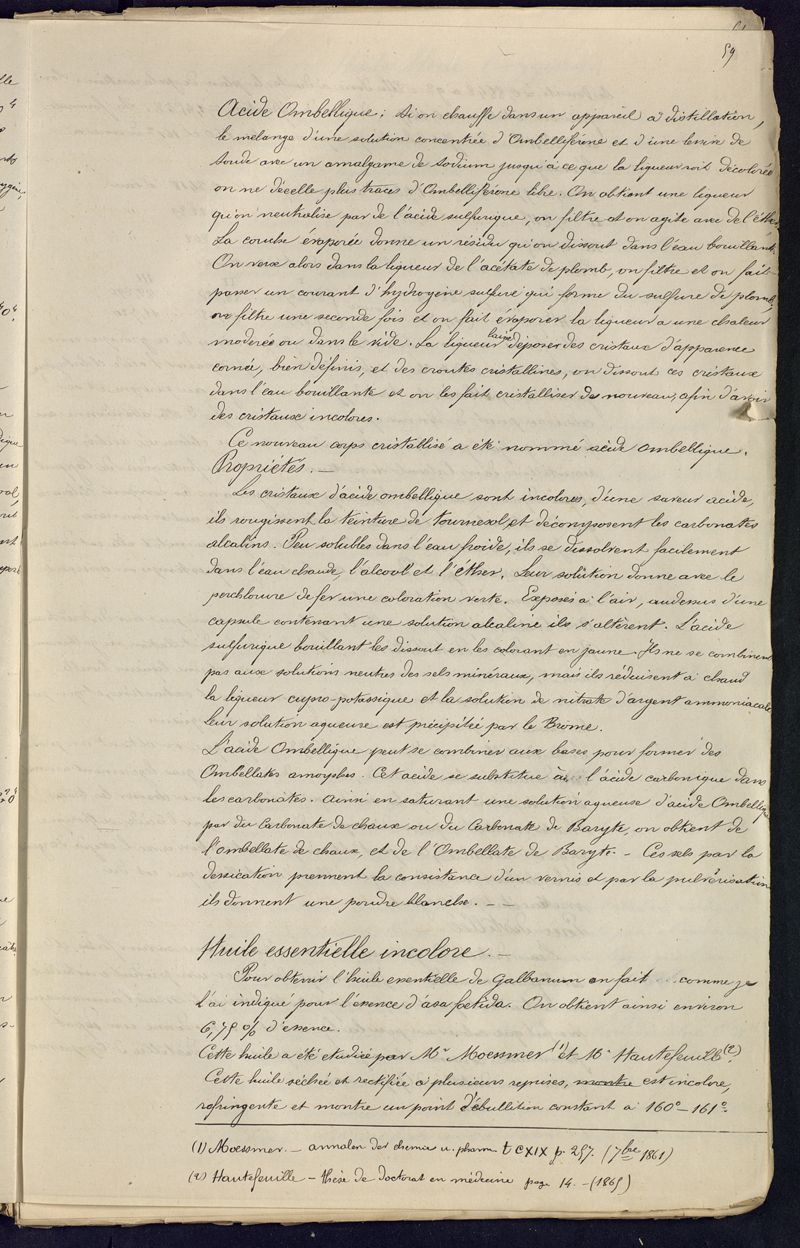 59
Acide Ombellique ; si on chauffe dans un appareil à distillation,
le melange d'une solution concentrée d'Ombelliférone et d'une lessive de
soude avec un amalgame de sodium jusqu'à ce que la liqueur soit décolorée
on ne décelle plus traces d'Ombelliférone libre. On obtient une liqueur
qu'on neutralise par de l'acide sulfurique, on filtre et on agite avec de l'éther.
La couche évaporée donne un résidu qu'on dissout dans l'eau bouillante.
On verse alors dans la liqueur de l'acétate de plomb, on filtre et on fait
passer un courant d'hydrogène sulfuré qui forme du sulfure de plomb,
on filtre une seconde fois et on fait évaporer la liqueur a une chaleur
modérée ou dans le vide. La liqueur laisse déposer des cristaux d'apparence
cornée, bien définis, et des croutes cristallines, on dissout ces cristaux
dans l'eau bouillante et on les fait cristalliser de nouveau, afin d'avoir
des cristaux incolores.
Ce nouveau corps cristallisé a été nommé acide ombellique.
Propriétés. —
Les cristaux d'acide ombellique sont incolores, d'une saveur acide,
ils rougissent la teinture de tournesol, et décomposent les carbonates
alcalins. Peu solubles dans l'eau froide, ils se dissolvent facilement
dans l'eau chaude, l'alcool et l'éther. Leur solution donne avec le
perchlorure de fer une coloration verte. Exposés à l'air, audessus d'une
capsule contenant une solution alcaline ils s'altèrent. L'acide
sulfurique bouillant les dissout en les colorant en jaune. Ils ne se combinent
pas aux solutions neutres des sels minéraux, mais ils réduisent à chaud
la liqueur cupro-potassique et la solution de nitrate d'argent ammoniacale
leur solution aqueuse est précipitée par le Brome.
L'acide Ombellique peut se combiner aux bases pour former des
Ombellates amorphes. Cet acide se substitue à l'acide carbonique dans
les carbonates. Ainsi en saturant une solution aqueuse d'acide Ombellique
par du Carbonate de chaux ou du Carbonate de Baryte, on obtient de
l'ombellate de chaux, et de l'Ombellate de Baryte. — Ces sels par la
dessication prennent la consistance d'un vernis et par la pulvérisation
ils donnent une poudre blanche. — —
Huile essentielle incolore. —
Pour obtenir l'huile essentielle de Galbanum on fait comme je
l'ai indiqué pour l'essence d'asa foetida. On obtient ainsi environ
6,75 % d'essence.
Cette huile a été etudiée par Mr Moessmer (1) et Mr Hautefeuille (2).
Cette huile séchée et rectifiée à plusieurs reprises, montre est incolore,
refringente et montre un point d'ébullition constant à 160° — 161°.
(1) Moessmer. — annalen der chemie u. pharm t CXIX p. 257. (7bre 1861)
(2) Hautefeuille — thèse de doctorat en médecine page 14. — (1865)